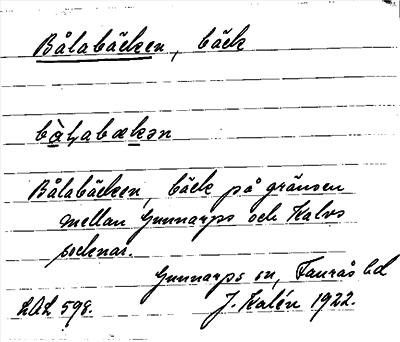 Bålabäcken, bäck
Bålabäcken, bäck på gränsen
mellan Gunnarps och Kalvs
socknar.
Gunnarps sn, Faurås hd
LAL 598. J. Kalén 1922.